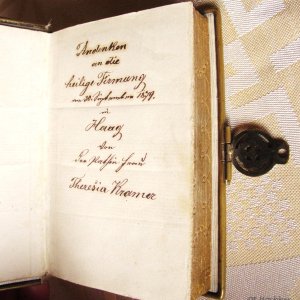 Andenken
an die
heilige Firmung
am 30. September 1879.
in
Haag
von
der Pathin Frau
Theresia Kramer